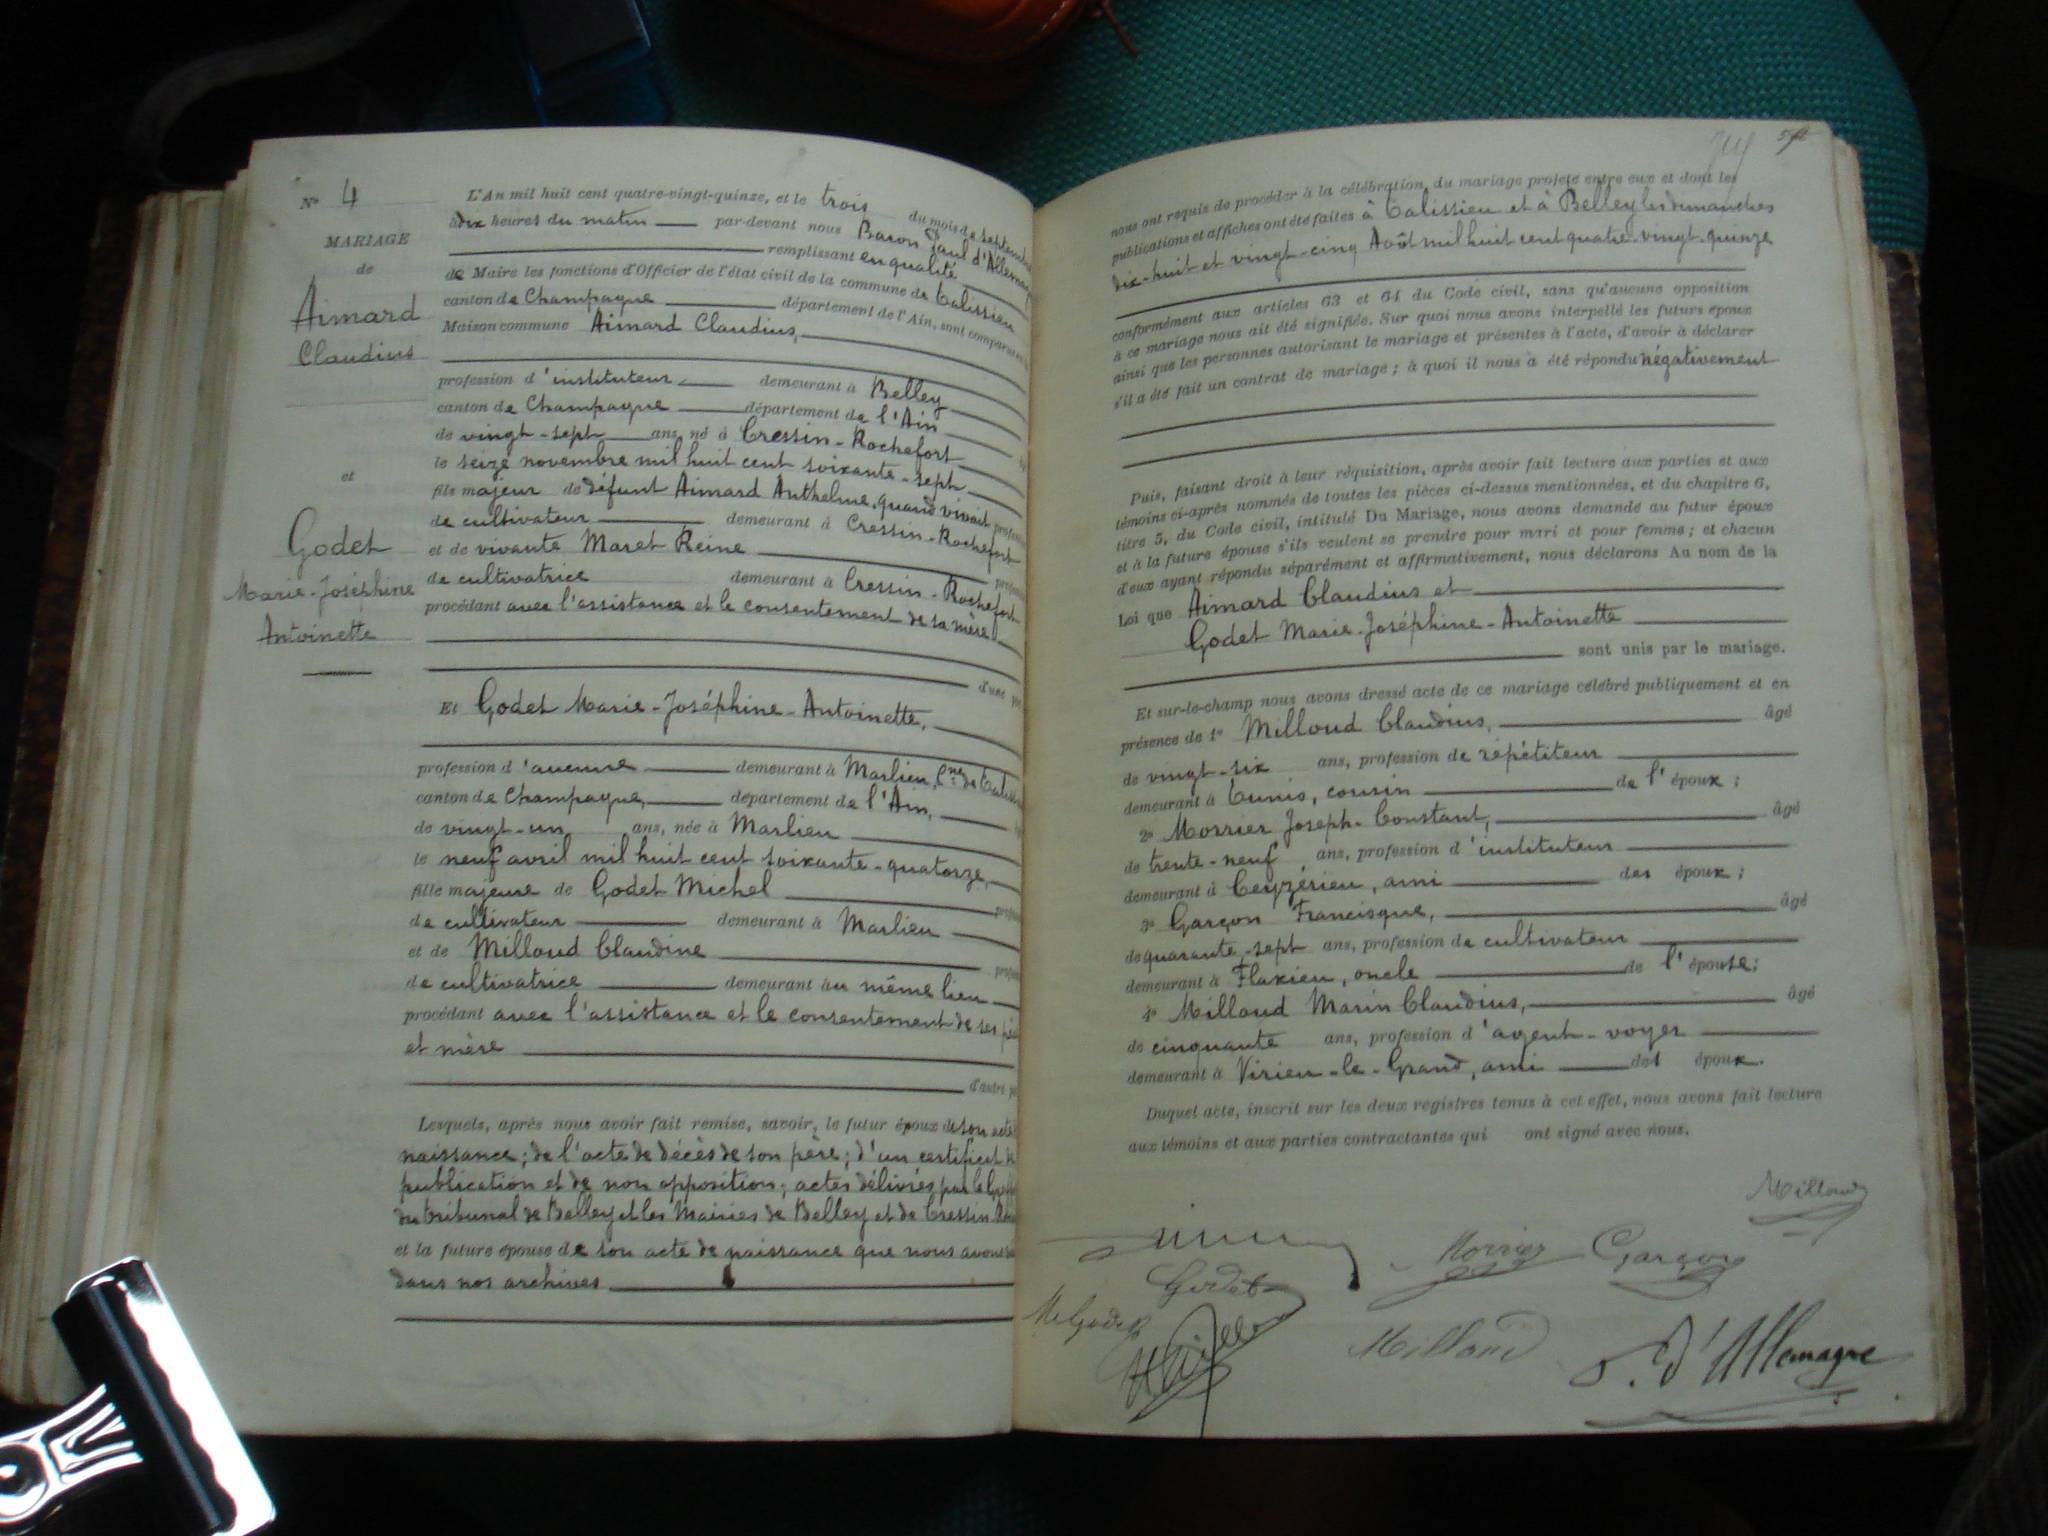 N° 4
MARIAGE
de
Aimard
Claudius
et
Godet
Marie-Joséphine
Antoinette
L'An mil huit cent quatre-vingt-quinze, et le trois du mois de septembre
à dix heures du matin par-devant nous Baron Paul d'Allemagne
remplissant en qualité
de Maire les fonctions d'Officier de l'état civil de la commune de Talissieu
canton de Champagne département de l'Ain, sont comparus en la
Maison commune Aimard Claudius,
profession d'instituteur demeurant à Belley
canton de Champagne département de l'Ain
de vingt-sept ans, né à Cressin-Rochefort
le seize novembre mil huit cent soixante-sept
fils majeur de défunt Aimard Anthelme, quand vivait
de cultivateur demeurant à Cressin-Rochefort
et de vivante Maret Reine
de cultivatrice demeurant à Cressin-Rochefort
procédant avec l'assistance et le consentement de sa mère
d'une
Et Godet Marie-Joséphine-Antoinette,
profession d'aucune demeurant à Marlieu, Cne de
canton de Champagne, département de l'Ain,
de vingt-un ans, née à Marlieu
le neuf avril mil huit cent soixante-quatorze,
fille majeure de Godet Michel
de cultivateur demeurant à Marlieu
et de Milloud Claudine
de cultivatrice demeurant au même lieu
procédant avec l'assistance et le consentement de ses
et mère
d'autre
Lesquels, après nous avoir fait remise, savoir, le futur époux de son acte
naissance; de l'acte de décès de son père; d'un certificat de
publication et de non opposition; actes délivrés par le
du tribunal de Belley et les Mairies de Belley et de Cressin
et la future épouse de son acte de naissance que nous avons
dans nos archives
nous ont requis de procéder à la célébration du mariage projeté entre eux et dont les
publications et affiches ont été faites à Talissieu et à Belley les dimanches
dix-huit et vingt-cinq Août mil huit cent quatre-vingt-quinze
conformément aux articles 63 et 64 du Code civil, sans qu'aucune opposition
à ce mariage nous ait été signifiée. Sur quoi nous avons interpellé les futurs époux
ainsi que les personnes autorisant le mariage et présentes à l'acte, d'avoir à déclarer
s'il a été fait un contrat de mariage; à quoi il nous a été répondu négativement
Puis, faisant droit à leur réquisition, après avoir fait lecture aux parties et aux
témoins ci-après nommés de toutes les pièces ci-dessus mentionnées, et du chapitre 6,
titre 5, du Code civil, intitulé Du Mariage, nous avons demandé au futur époux
et à la future épouse s'ils veulent se prendre pour mari et pour femme; et chacun
d'eux ayant répondu séparément et affirmativement, nous déclarons Au nom de la
Loi que Aimard Claudius et
Godet Marie-Joséphine-Antoinette
sont unis par le mariage.
Et sur-le-champ nous avons dressé acte de ce mariage célébré publiquement et en
présence de 1° Milloud Claudius, âgé
de vingt-six ans, profession de répétiteur
demeurant à Tunis, cousin de l'époux;
2° Morrier Joseph-Constant, âgé
de trente-neuf ans, profession d'instituteur
demeurant à Ceyzérieu, ami des époux;
3° Garçon Francisque, âgé
de quarante-sept ans, profession de cultivateur
demeurant à Flaxieu, oncle de l'épouse;
4° Milloud Marin Claudius, âgé
de cinquante ans, profession d'agent-voyer
demeurant à Virieu-le-Grand, ami des époux.
Duquel acte, inscrit sur les deux registres tenus à cet effet, nous avons fait lecture
aux témoins et aux parties contractantes qui ont signé avec nous.
Milloud
Morrier Garçon
Godet
M Godet
Milloud
P. d'Allemagne